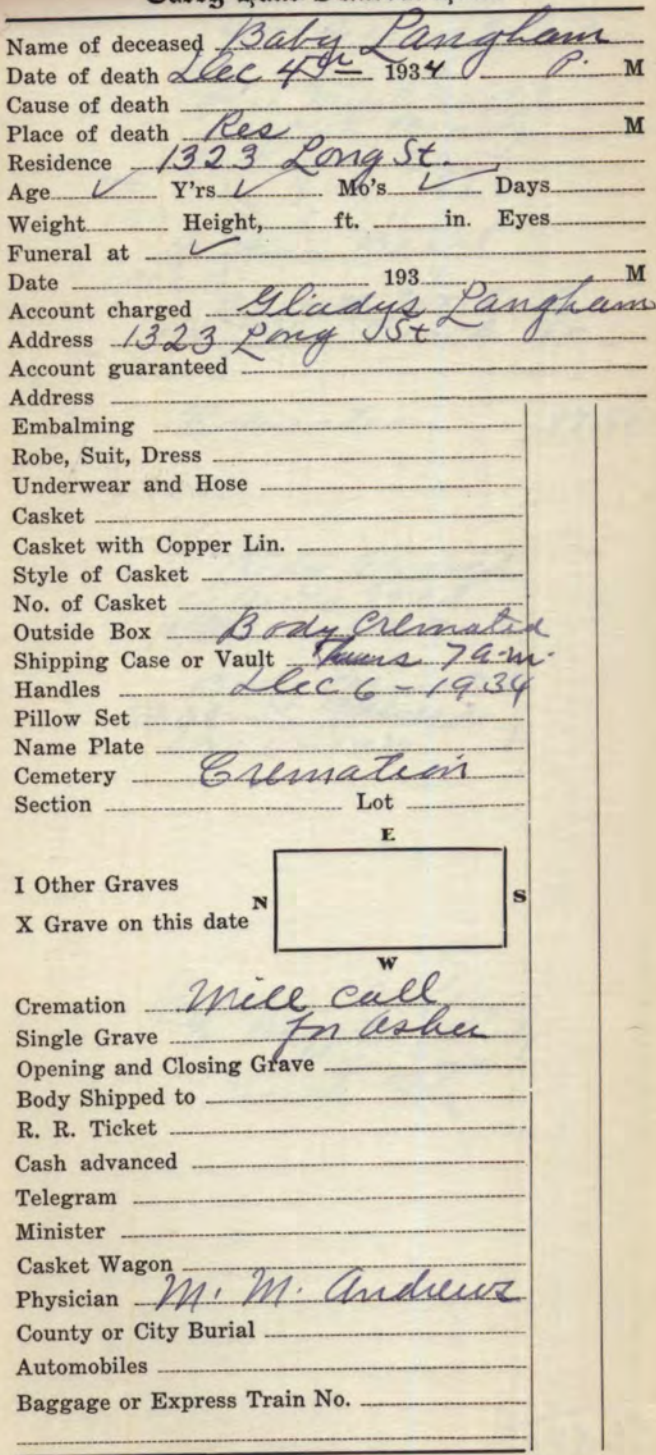 Name of deceased Baby Langham
Date of death Dec 4th 1934 P. M
Cause of death
Place of death Res M
Residence 1323 Long St.
Age ✓ Y'rs ✓ Mo's ✓ Days
Weight Height, ft. in. Eyes
Funeral at ✓
Date 193 M
Account charged Gladys Langham
Address 1323 Long St
Account guaranteed
Address
Embalming
Robe, Suit, Dress
Underwear and Hose
Casket
Casket with Copper Lin.
Style of Casket
No. of Casket
Outside Box Body Cremated
Shipping Case or Vault Thurs 7 a.m.
Handles Dec 6 - 1934
Pillow Set
Name Plate
Cemetery Cremation
Section Lot
E
I Other Graves
N S
X Grave on this date
W
Cremation Will call
Single Grave for ashes
Opening and Closing Grave
Body Shipped to
R. R. Ticket
Cash advanced
Telegram
Minister
Casket Wagon
Physician M. M. Andrews
County or City Burial
Automobiles
Baggage or Express Train No.